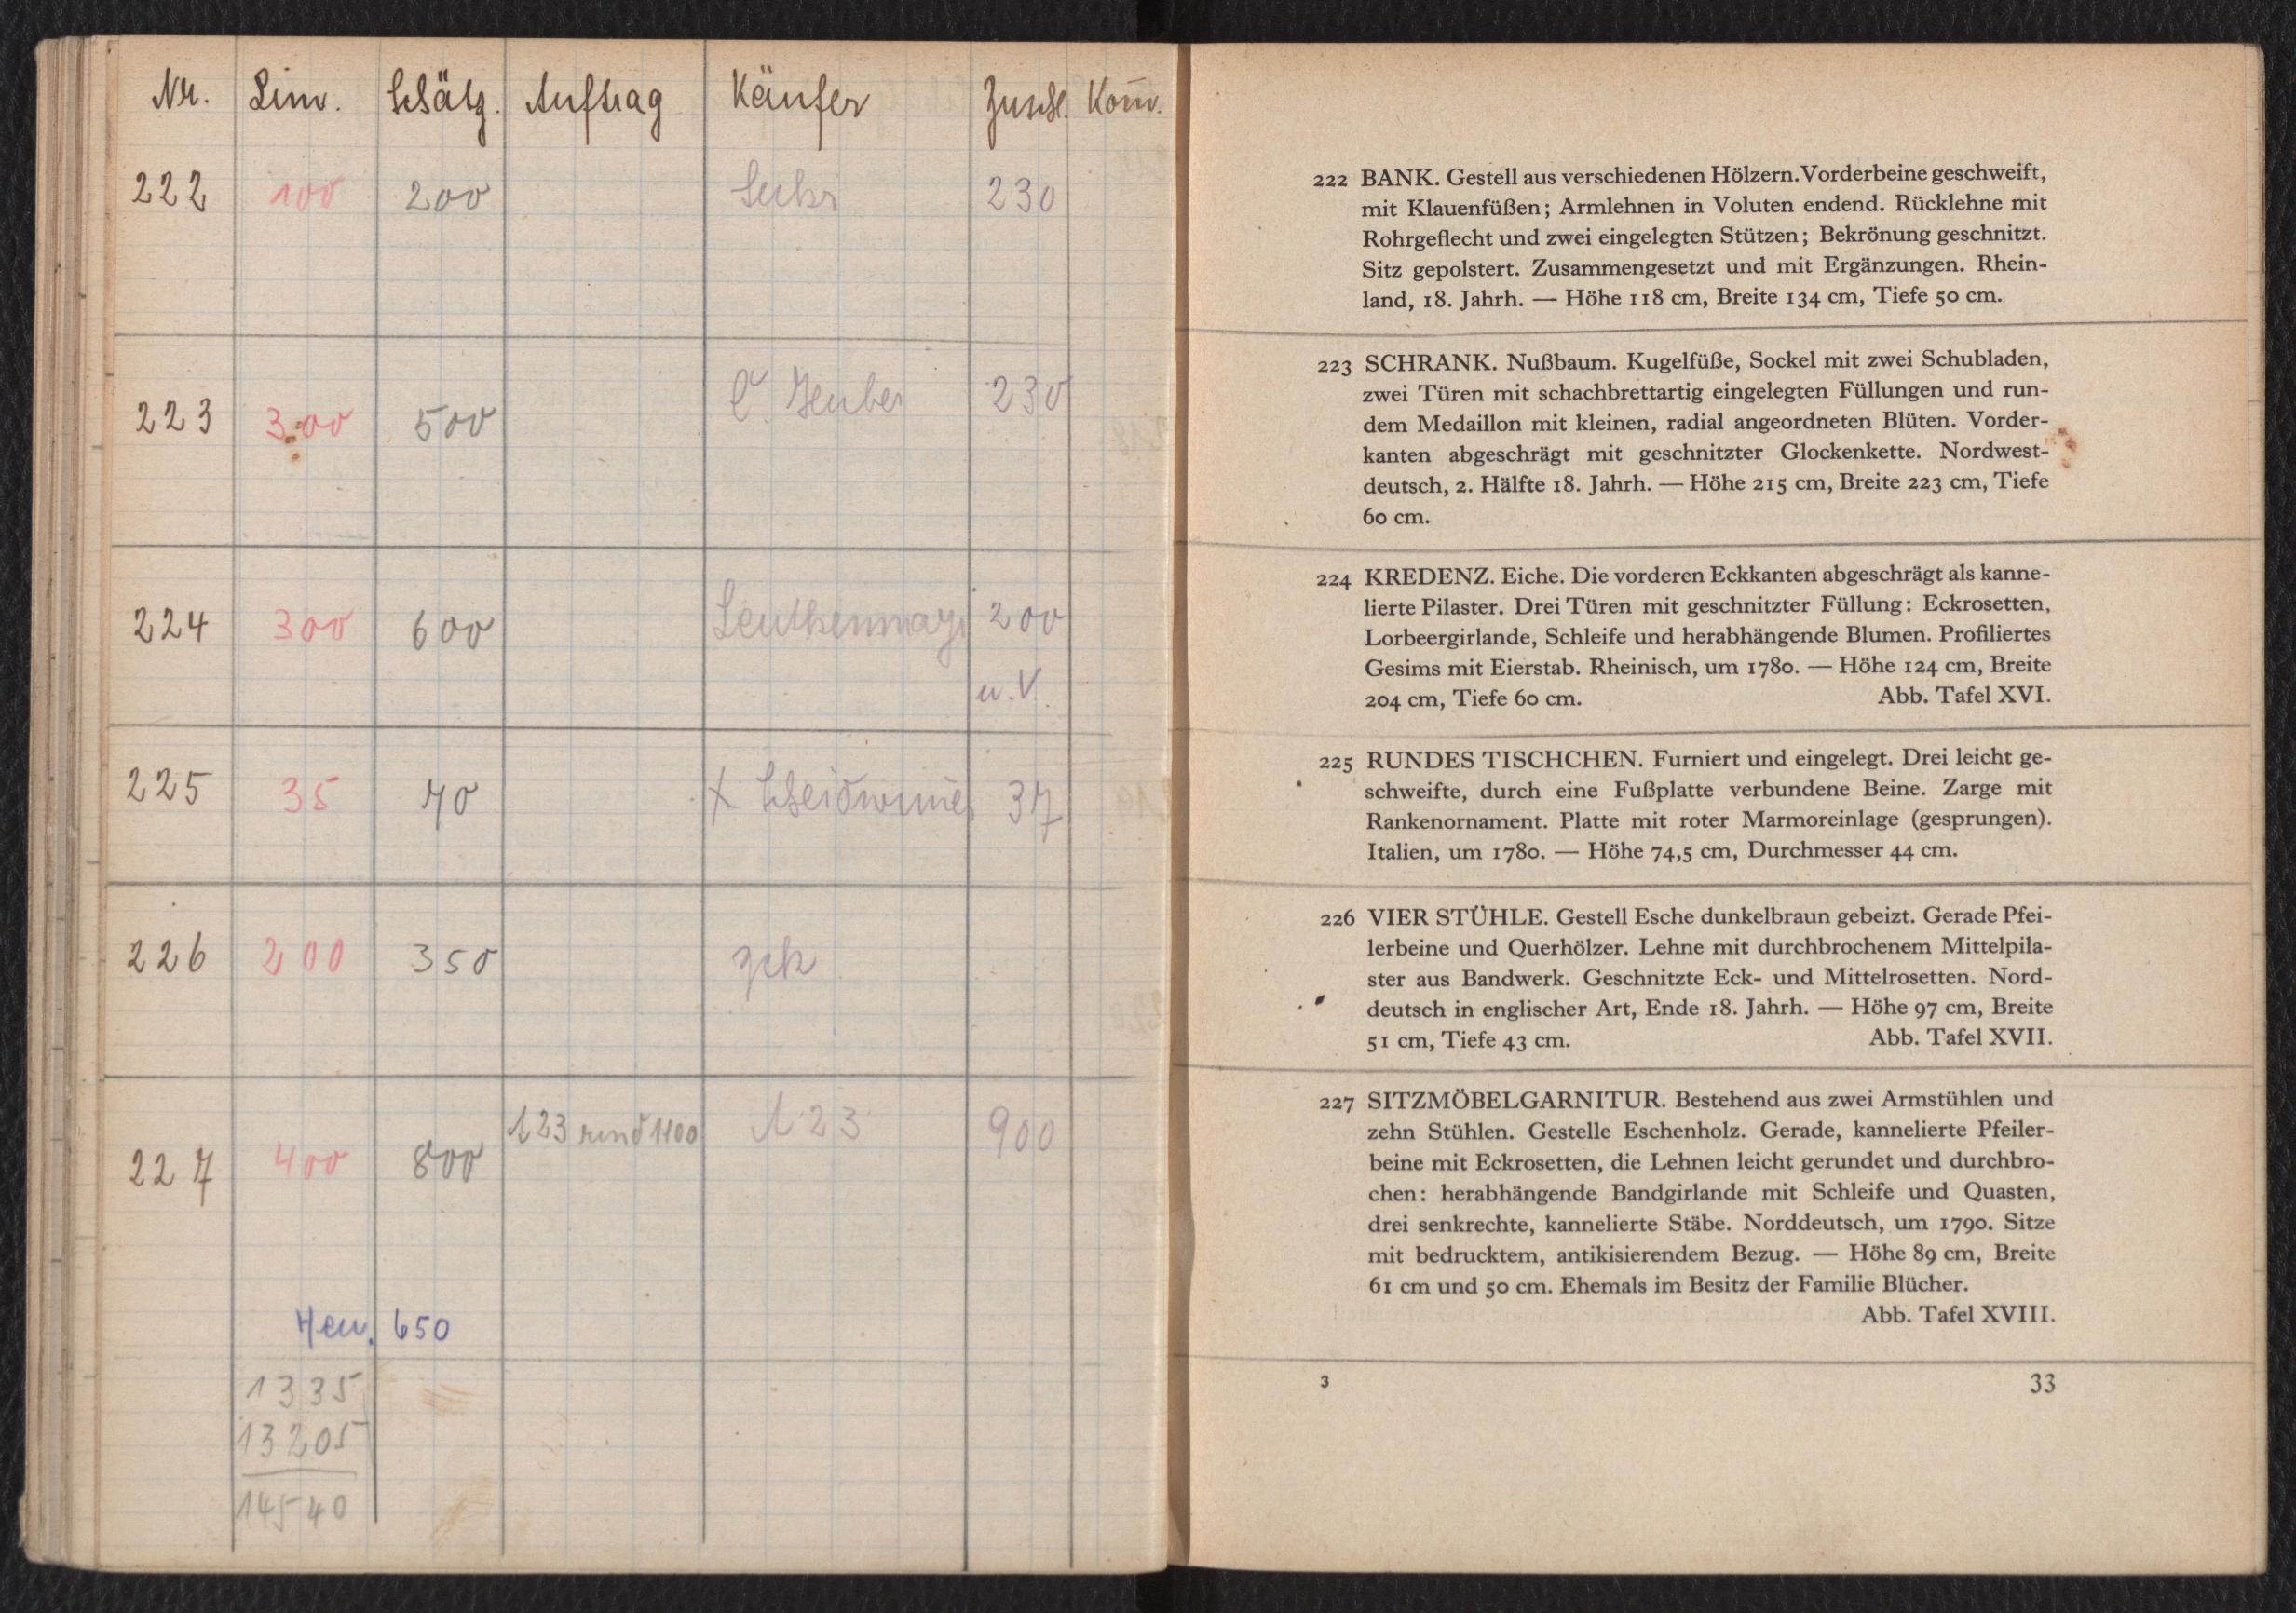 Nr. Lim. Schätzg. Auftrag Käufer Zuschl. Kom̅.
222 100 200 230
223 300 500 230
224 300 600 200
u. V.
225 35 70 37
226 200 350 zck
227 400 800 123 rund 1100 123 900
650
1335
13205
14540
222 BANK. Gestell aus verschiedenen Hölzern. Vorderbeine geschweift,
mit Klauenfüßen; Armlehnen in Voluten endend. Rücklehne mit
Rohrgeflecht und zwei eingelegten Stützen; Bekrönung geschnitzt.
Sitz gepolstert. Zusammengesetzt und mit Ergänzungen. Rhein-
land, 18. Jahrh. — Höhe 118 cm, Breite 134 cm, Tiefe 50 cm.
223 SCHRANK. Nußbaum. Kugelfüße, Sockel mit zwei Schubladen,
zwei Türen mit schachbrettartig eingelegten Füllungen und run-
dem Medaillon mit kleinen, radial angeordneten Blüten. Vorder-
kanten abgeschrägt mit geschnitzter Glockenkette. Nordwest-
deutsch, 2. Hälfte 18. Jahrh. — Höhe 215 cm, Breite 223 cm, Tiefe
60 cm.
224 KREDENZ. Eiche. Die vorderen Eckkanten abgeschrägt als kanne-
lierte Pilaster. Drei Türen mit geschnitzter Füllung: Eckrosetten,
Lorbeergirlande, Schleife und herabhängende Blumen. Profiliertes
Gesims mit Eierstab. Rheinisch, um 1780. — Höhe 124 cm, Breite
204 cm, Tiefe 60 cm. Abb. Tafel XVI.
225 RUNDES TISCHCHEN. Furniert und eingelegt. Drei leicht ge-
schweifte, durch eine Fußplatte verbundene Beine. Zarge mit
Rankenornament. Platte mit roter Marmoreinlage (gesprungen).
Italien, um 1780. — Höhe 74,5 cm, Durchmesser 44 cm.
226 VIER STÜHLE. Gestell Esche dunkelbraun gebeizt. Gerade Pfei-
lerbeine und Querhölzer. Lehne mit durchbrochenem Mittelpila-
ster aus Bandwerk. Geschnitzte Eck- und Mittelrosetten. Nord-
deutsch in englischer Art, Ende 18. Jahrh. — Höhe 97 cm, Breite
51 cm, Tiefe 43 cm. Abb. Tafel XVII.
227 SITZMÖBELGARNITUR. Bestehend aus zwei Armstühlen und
zehn Stühlen. Gestelle Eschenholz. Gerade, kannelierte Pfeiler-
beine mit Eckrosetten, die Lehnen leicht gerundet und durchbro-
chen: herabhängende Bandgirlande mit Schleife und Quasten,
drei senkrechte, kannelierte Stäbe. Norddeutsch, um 1790. Sitze
mit bedrucktem, antikisierendem Bezug. — Höhe 89 cm, Breite
61 cm und 50 cm. Ehemals im Besitz der Familie Blücher.
Abb. Tafel XVIII.
3 33